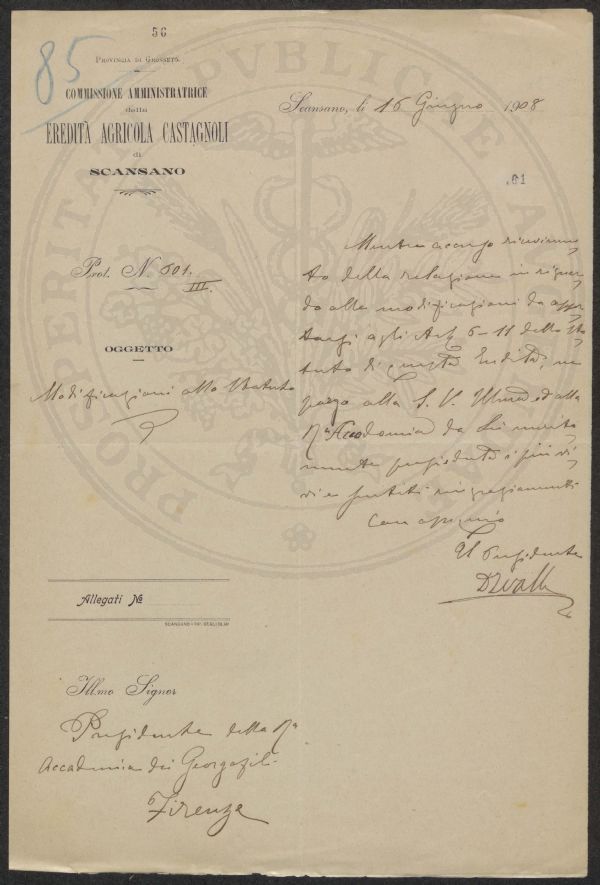 56
85
PROVINCIA DI GROSSETO.
COMMISSIONE AMMINISTRATRICE
della
EREDITÀ AGRICOLA CASTAGNOLI
di
SCANSANO
Scansano, li 16 Giugno 1908
Prot. N. 601.
III.
OGGETTO
Modificazioni allo Statuto
Mentre accuso ricevimen-
to della relazione in riguar-
do alle modificazioni da appor-
tarsi agli Art. 6-11 dello Sta-
tuto di questa Eredità, ne
porgo alla S. V. Illma ed alla
Ra Accademia da Lei merita-
mente presieduta i più vi-
vi e sentiti ringraziamenti
Con ossequio
Il Presidente
Allegati No
SCANSANO - TIP. DEGLI OLMI
Illmo Signor
Presidente della Ra
Accademia dei Georgofili
Firenze
PROSPERITATI PVBLICAE AVGENDAE